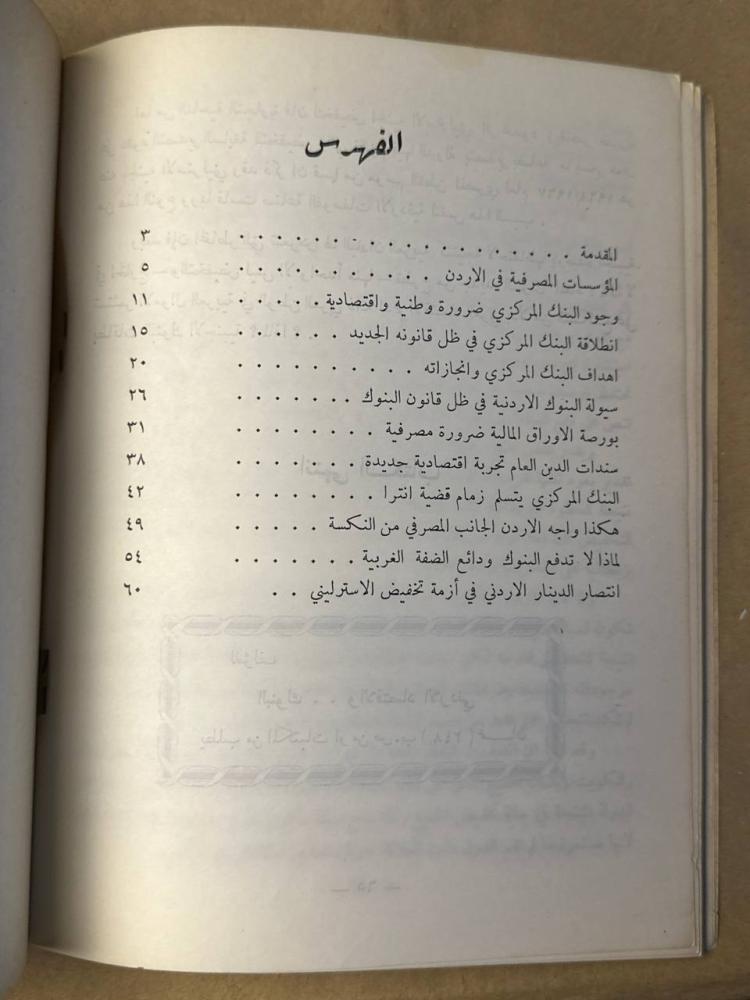 الفهرس
المقدمة . . . . . . . . . . . . . . . . . ٣
المؤسسات المصرفية في الاردن . . . . . . . . . . ٥
وجود البنك المركزي ضرورة وطنية واقتصادية . . . . . ١١
انطلاقة البنك المركزي في ظل قانونه الجديد . . . . . . ١٥
اهداف البنك المركزي وانجازاته . . . . . . . . . . ٢٠
سيولة البنوك الاردنية في ظل قانون البنوك . . . . . . . ٢٦
بورصة الاوراق المالية ضرورة مصرفية . . . . . . . . ٣١
سندات الدين العام تجربة اقتصادية جديدة . . . . . . . ٣٨
البنك المركزي يتسلم زمام قضية انترا . . . . . . . . ٤٢
هكذا واجه الاردن الجانب المصرفي من النكسة . . . . . ٤٩
لماذا لا تدفع البنوك ودائع الضفة الغربية . . . . . . . ٥٤
انتصار الدينار الاردني في أزمة تخفيض الاسترليني . . ٦٠